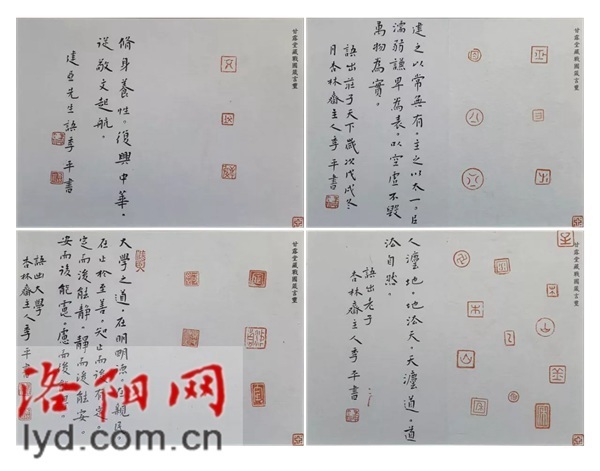 甘露堂藏戰國箴言璽
脩身養性。復興中華。
從敬文起航。
建亞先生語 李平書
甘露堂藏戰國箴言璽
建之以常無有。主之以太一。以
濡弱謙卑為表。以空虛不毀
萬物為實。
語出莊子天下 歲次戊戌冬
月杏林齋主人李平書
甘露堂藏戰國箴言璽
大學之道。在明明德。在親民
在止於至善。知止而後有定。
定而後能靜。靜而後能安。
安而後能慮。慮而後
語出大學
杏林齋主人李平書
甘露堂藏戰國箴言璽
人灋地。地法天。天灋道。道
法自然。
語出老子
杏林齋主人李平書
洛阳网
lyd.com.cn